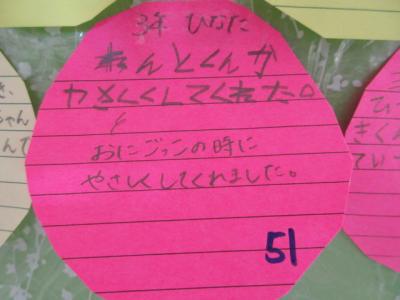 3年 ひなた
れんとくんが
やさしくしてくれた。
おにごっこの時に
やさしくしてくれました。
51
さ.
ちゃん
んで
ひっ
きくん
てい